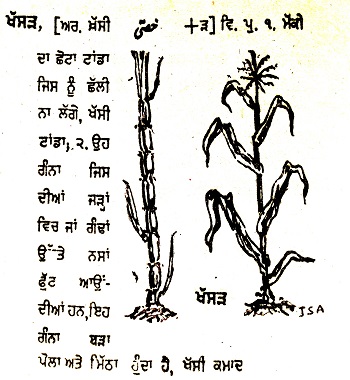 ਖੱਸੜ, [ਅਰ. ਖ਼ੱਸੀ خصی +ੜ] ਵਿ. ਪੁ. ੧. ਮੱਕੀ
ਦਾ ਛੋਟਾ ਟਾਂਡਾ
ਜਿਸ ਨੂੰ ਛੱਲੀ
ਨਾ ਲੱਗੇ, ਖੱਸੀ
ਟਾਂਡਾ; ੨. ਉਹ
ਗੰਨਾ ਜਿਸ
ਦੀਆਂ ਜੜ੍ਹਾਂ
ਵਿਚ ਜਾਂ ਗੰਢਾਂ
ਉੱਤੇ ਨਸਾਂ
ਫੁੱਟ ਆਉਂ-
ਦੀਆਂ ਹਨ, ਇਹ
ਗੰਨਾ ਬੜਾ
ਪੋਲਾ ਅਤੇ ਮਿੱਠਾ ਹੁੰਦਾ ਹੈ, ਖੱਸੀ ਕਮਾਦ
ਖੱਸੜ
JSA